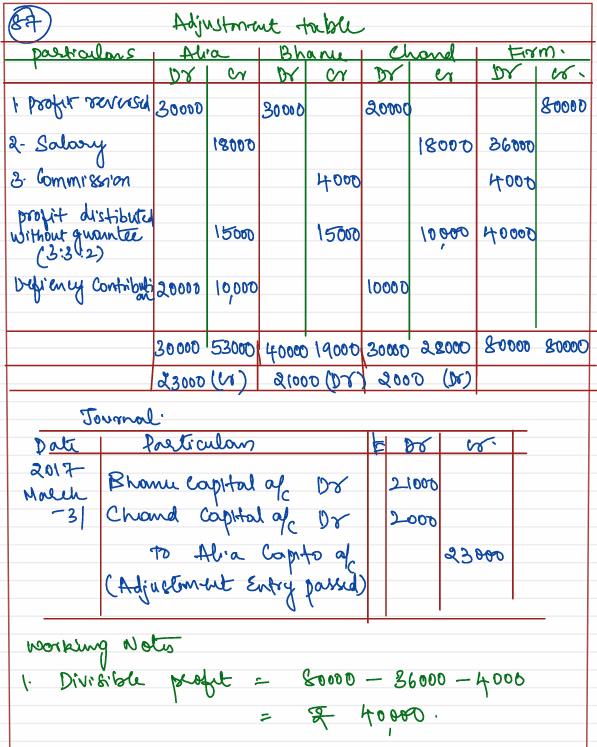 87
Adjustment table
particulars Alia Bhanu Chand Firm.
Dr Cr Dr Cr Dr Cr Dr Cr.
1 Profit reversed 30000 30000 20000 80000
2- Salary 18000 18000 36000
3. Commission 4000 4000
profit distibuted
without guarantee 15000 15000 10,000 40000
(3:3:2)
Defiency Contribution 20000 10,000 10000
30000 53000 40000 19000 30000 28000 80000 80000
23000 (Cr) 21000 (Dr) 2000 (Dr)
Journal.
Date Particulars F Dr Cr.
2017
March Bhanu Capital a/c Dr 21000
-31 Chand Capital a/c Dr 2000
To Alia Capito a/c 23000
(Adjustment Entry passed)
Working Notes
1. Divisible profit = 80000 - 36000 - 4000
= ₹ 40,000.